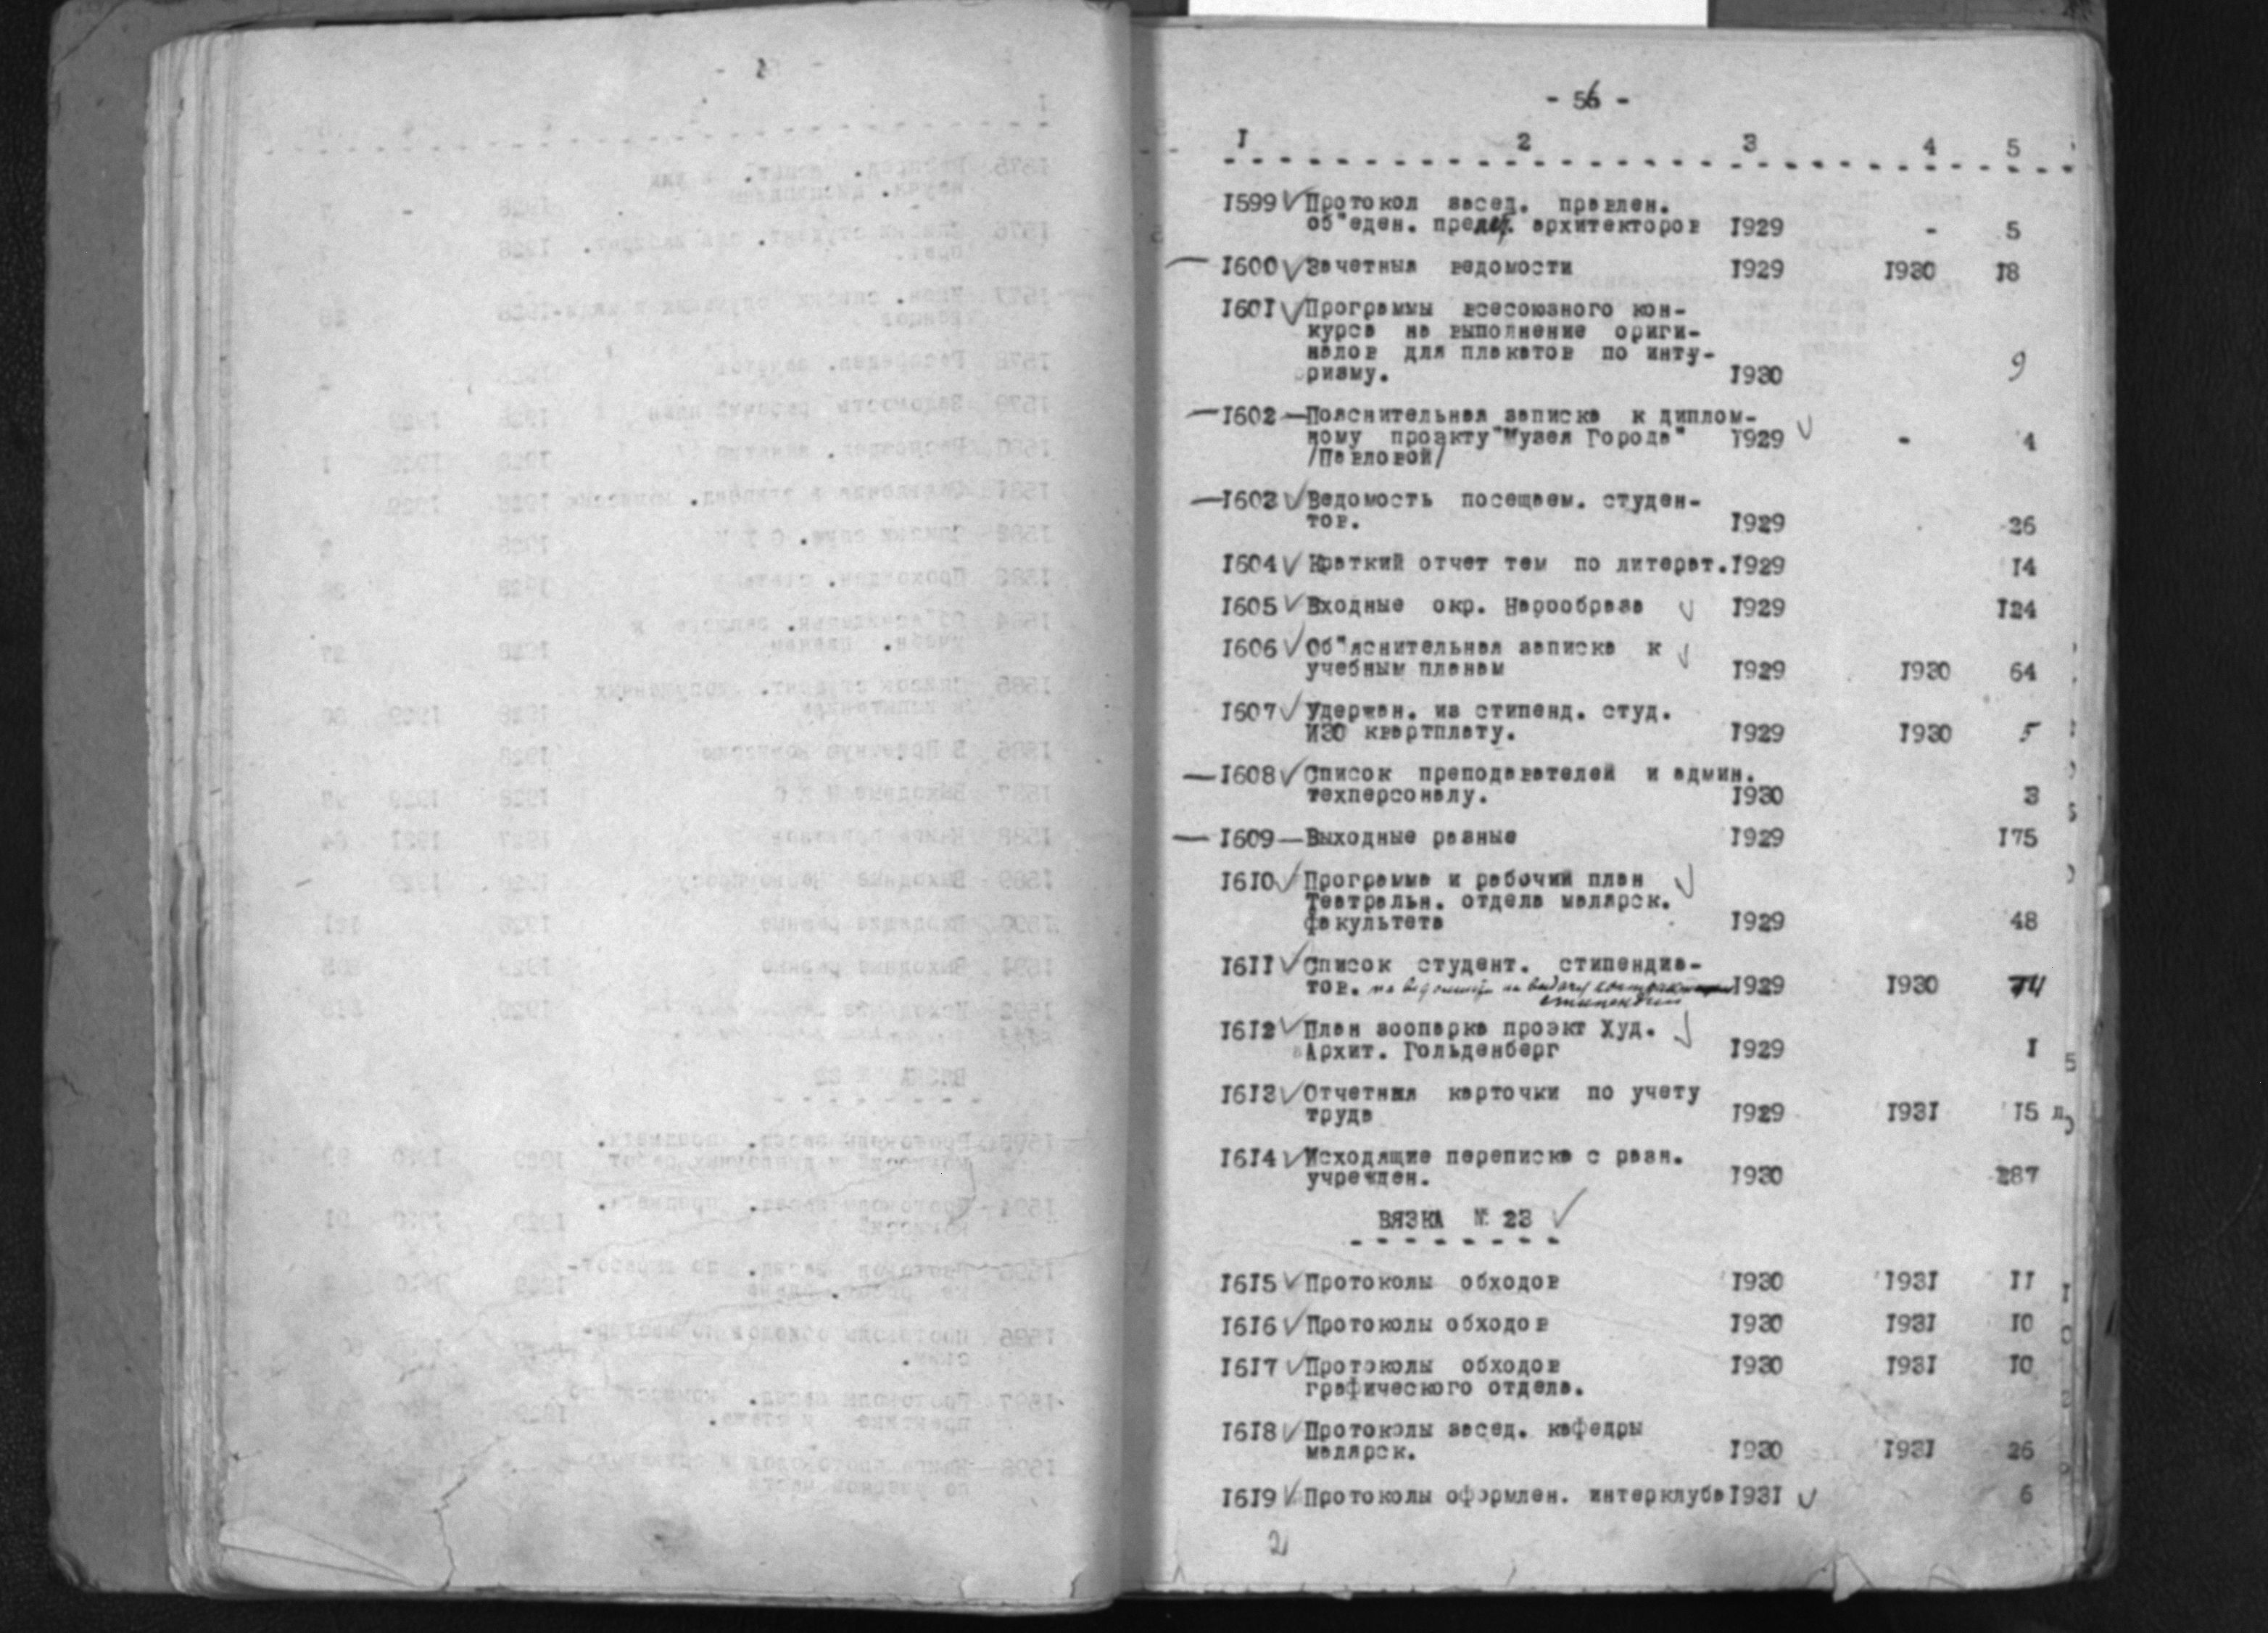 - 56 -
1 2 3 4 5
1599 Протокол засед. правлен.
об"еден. пролет. архитекторов 1929 - 5
1600 Зачетныя ведомости 1929 1930 18
1601 Программы всесоюзного кон-
курса на выполнение ориги-
налов для плакатов по инту-
ризму. 1930 9
1602 Пояснительная записка к диплом-
ному проэкту "Музея Города" 1929 - 4
/Павловой/
1603 Ведомость посещаем. студен-
тов. 1929 26
1604 Краткий отчет тем по литерат. 1929 14
1605 Входные окр. Наробраза 1929 124
1606 Об"яснительная записка к
учебным планам 1929 1930 64
1607 Удержан. из стипенд. студ.
ИЗО квартплату. 1929 1930 5
1608 Список преподавателей и админ.
техперсоналу. 1930 3
1609 Выходные разные 1929 175
1610 Программа и рабочий план
Театральн. отдела малярск.
факультета 1929 48
1611 Список студент. стипендиа-
тов. 1929 1930
стипендии
1612 План зоопарка проэкт Худ.
Архит. Гольденберг 1929 1
1613 Отчетныя карточки по учету
труда 1929 1931 15 л
1614 Исходящие переписка с разн.
учрежден. 1930 287
ВЯЗКА № 23
1615 Протоколы обходов 1930 1931 11
1616 Протоколы обходов 1930 1931 10
1617 Протоколы обходов 1930 1931 10
графического отдела.
1618 Протоколы засед. кафедры
малярск. 1930 1931 26
1619 Протоколы оформлен. интерклуба 1931 6
2